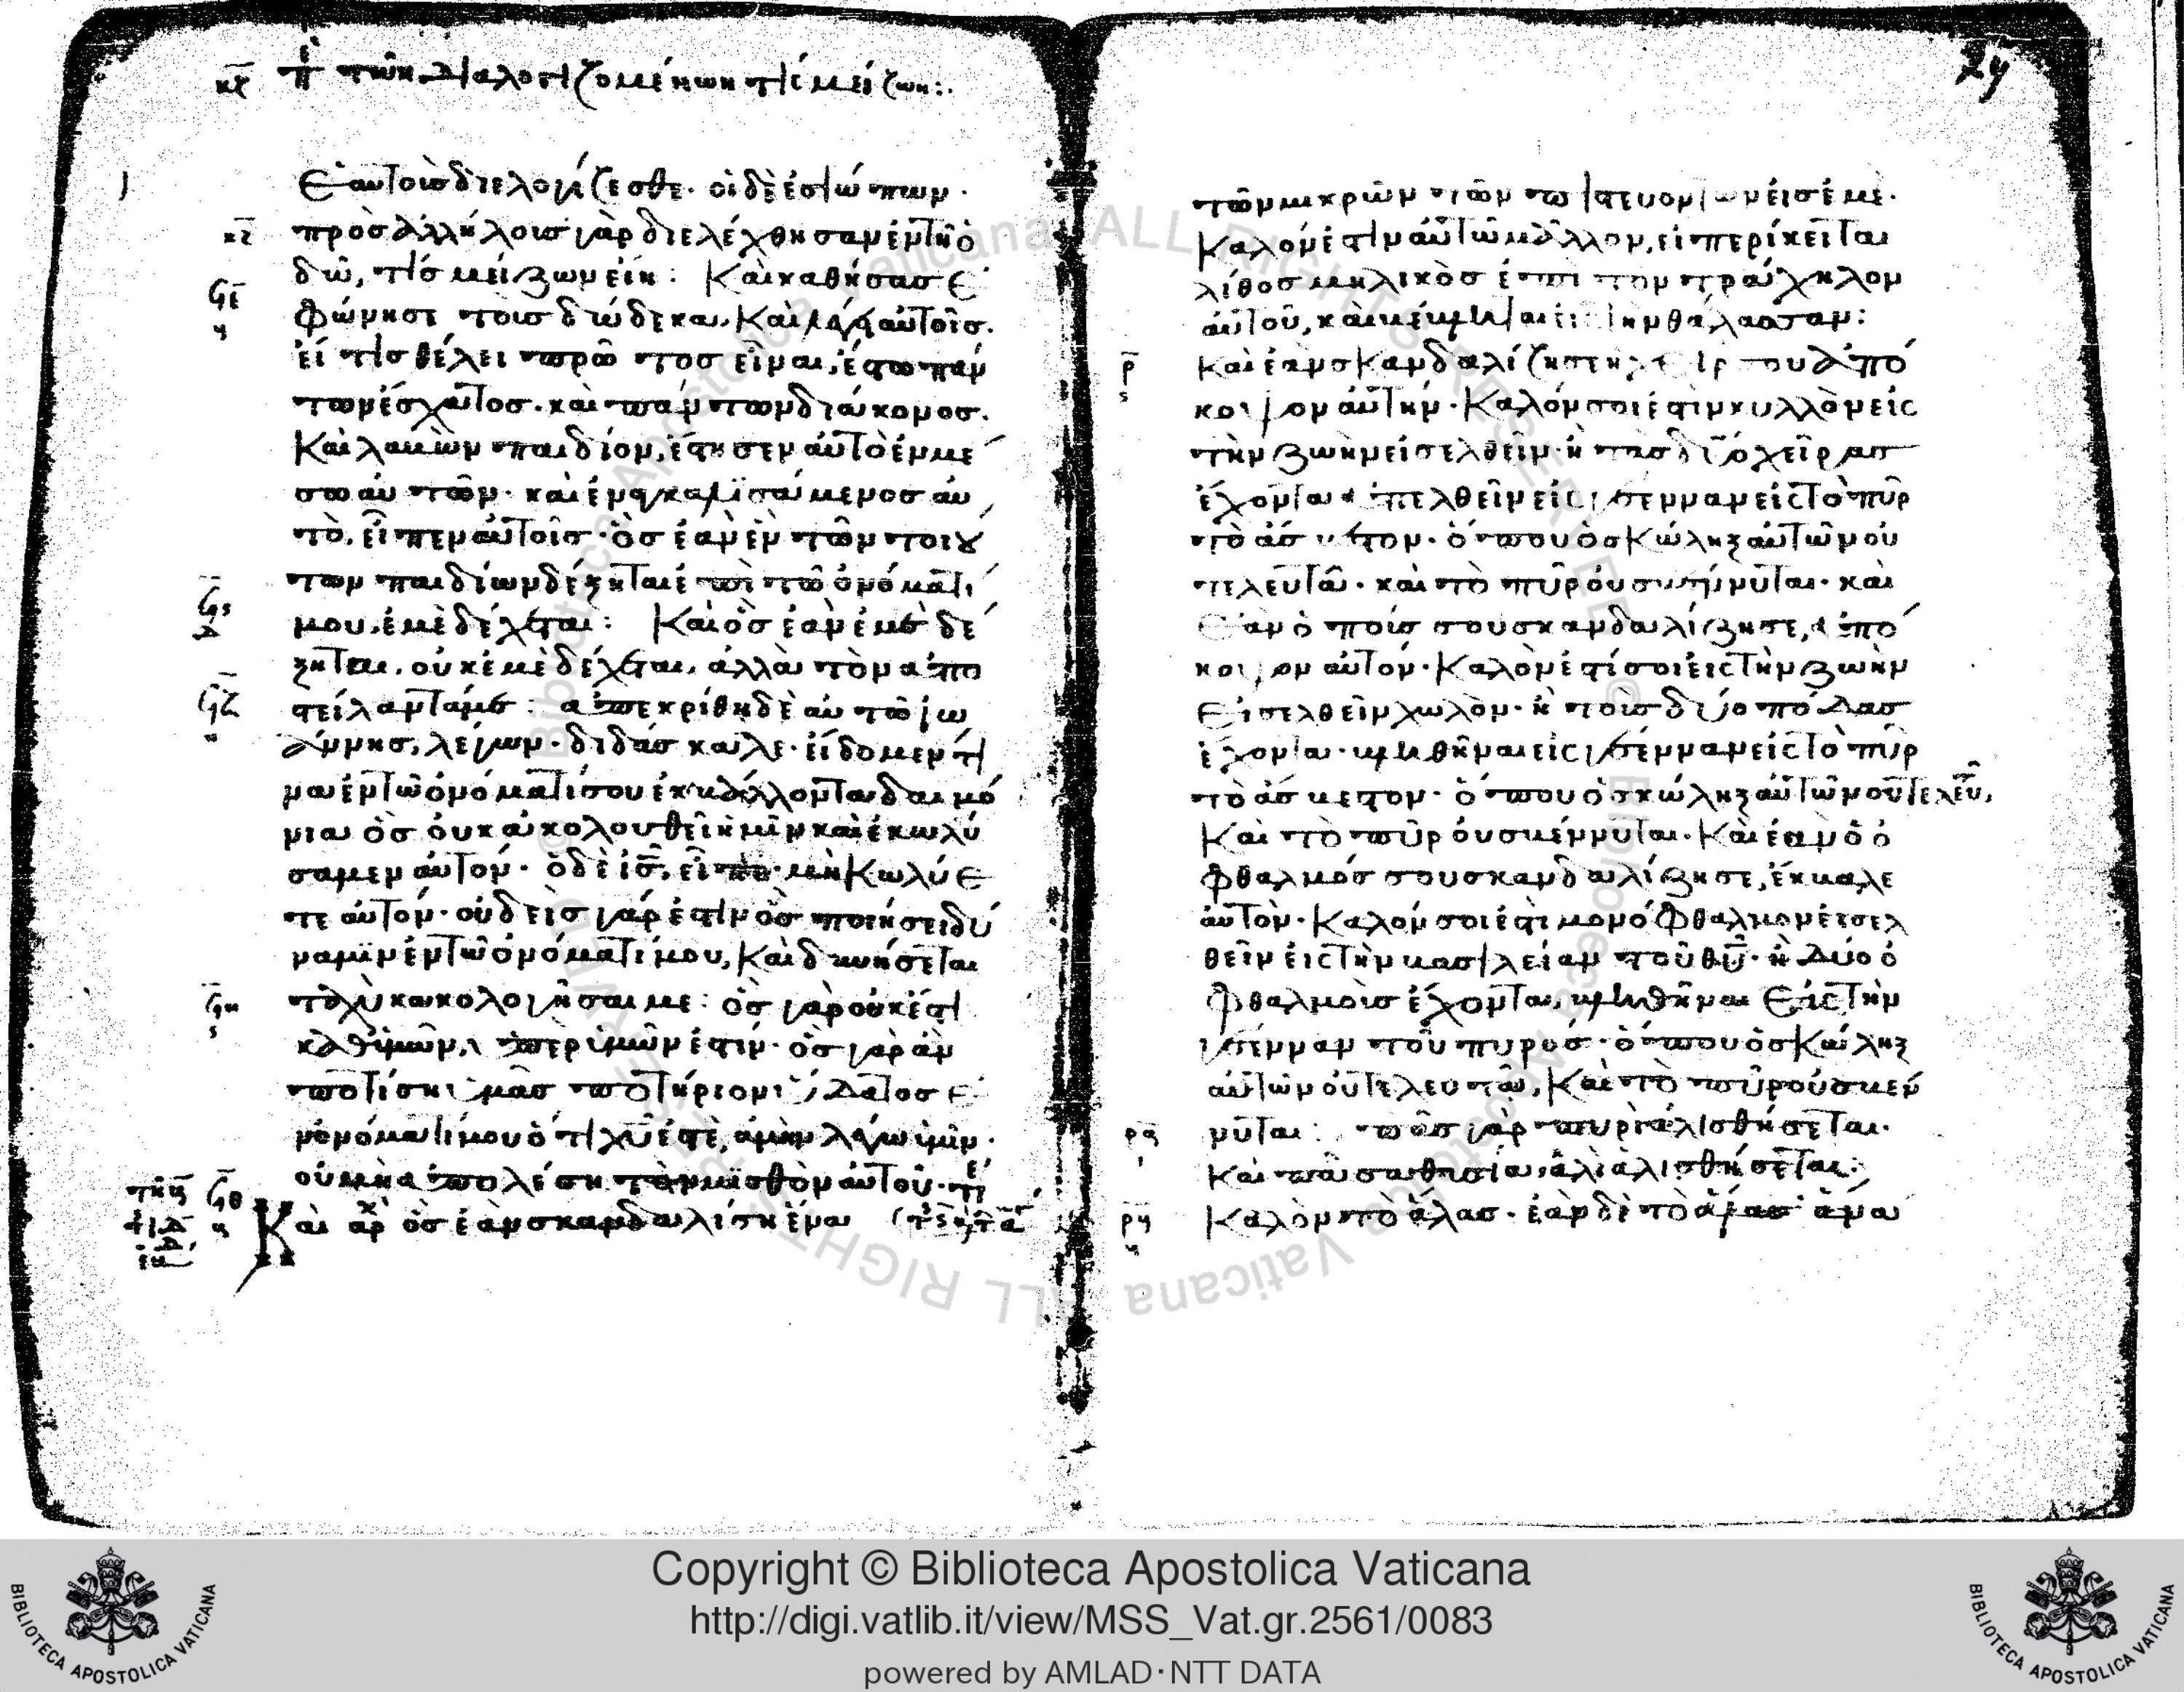 κζ περὶ τῶν διαλογιζομένων τίς μείζων:
ἑαυτοῖς διελογίζεσθε· οἱ δὲ ἐσιώπων·
κζ πρὸς ἀλλήλοις γὰρ διελέχθησαν ἐν τῇ ὁ
δῶ, τίς μείζων εἴη: Καὶ καθήσας ἐ
φώνησε τοὺς δώδεκα. Καὶ λέγει αὐτοῖς.
εἴ τις θέλει πρῶτος εἶναι, ἔσται πάν
των ἔσχατος. καὶ πάντων διάκονος.
Καὶ λαβὼν παιδίον, ἔστησεν αὐτὸ ἐν μέ
σω αὐτῶν· καὶ ἐναγκαλισάμενος αὐ
τὸ, εἶπεν αὐτοῖς· ὃς ἐὰν ἓν τῶν τοιού
των παιδίων δέξηται ἐπὶ τῶ ὀνόματί
μου, ἐμὲ δέχεται: Καὶ ὃς ἐὰν ἐμὲ δέ
ξηται, οὐκ ἐμὲ δέχεται, ἀλλὰ τὸν ἀπο
στείλαντά με: ἀπεκρίθη δὲ αὐτῶ ἰω
άννης, λέγων· διδάσκαλε· εἴδομέν τι
να ἐν τῶ ὀνόματί σου ἐκβάλλοντα δαιμό
νια ὃς οὐκ ἀκολουθεῖ ἡμῖν καὶ ἐκωλύ
σαμεν αὐτόν· ὁ δὲ ἰς, εἶπε· μὴ κωλύε
τε αὐτόν· οὐδεὶς γάρ ἐστιν ὃς ποιήσει δύ
ναμιν ἐν τῶ ὀνόματί μου, καὶ δυνήσεται
ταχὺ κακολογῆσαί με: ὃς γὰρ οὐκ ἔστι
καθ' ὑμῶν, ὑπὲρ ὑμῶν ἐστίν· ὃς γὰρ ἂν
ποτίση ὑμᾶς ποτήριον ὕδατος ἐ
ν ὀνόματί μου ὅτι χυ ἐστὲ, ἀμὴν λέγω ὑμῖν·
οὐ μὴ ἀπολέση τὸν μισθὸν αὐτοῦ·
Καὶ ὃς ἐὰν σκανδαλίση ἕνα
24
τῶν μικρῶν τῶν πιστευόντων εἰς ἐμὲ·
καλόν ἐστιν αὐτῶ μᾶλλον, εἰ περίκειται
λίθος μυλικὸς ἐπὶ τὸν τράχηλον
αὐτοῦ, καὶ βέβληται εἰς τὴν θάλασσαν:
ρ Καὶ ἐὰν σκανδαλίζη σε ἡ χείρ σου ἀπό
κοψον αὐτήν· Καλόν σοι ἐστὶν κυλλὸν εἰς
τὴν ζωὴν εἰσελθεῖν· ἢ τὰς δύο χεῖρας
ἔχοντα ἀπελθεῖν εἰς γέενναν εἰς τὸ πῦρ
τὸ ἄσβεστον· ὅπου ὁ σκώληξ αὐτῶν οὐ
τελευτᾶ· καὶ τὸ πῦρ οὐ σβέννυται· καὶ
ἐὰν ὁ πούς σου σκανδαλίζη σε, ἀπό
κοψον αὐτόν· Καλὸν ἐστί σοι εἰς τὴν ζωὴν
εἰσελθεῖν χωλὸν· ἢ τοὺς δύο πόδας
ἔχοντα· βληθῆναι εἰς γέενναν εἰς τὸ πῦρ
τὸ ἄσβεστον· ὅπου ὁ σκώληξ αὐτῶν οὐ τελευ,
Καὶ τὸ πῦρ οὐ σβέννυται. Καὶ ἐὰν ὁ ὀ
φθαλμός σου σκανδαλίζη σε, ἔκβαλε
αὐτὸν· Καλόν σοι ἐστὶ μονόφθαλμον εἰσελ
θεῖν εἰς τὴν βασιλείαν τοῦ θυ· ἢ δύο ὀ
φθαλμοὺς ἔχοντα, βληθῆναι εἰς τὴν
γέενναν τοῦ πυρός· ὅπου ὁ σκώληξ
αὐτῶν οὐ τελευτᾶ, Καὶ τὸ πῦρ οὐ σβέν
ρα νυται: πᾶς γὰρ πυρὶ ἁλισθήσεται.
Καὶ πᾶσα θυσία ἁλὶ ἁλισθήσεται:
Καλὸν τὸ ἅλας. ἐὰν δὲ τὸ ἅλας ἄνα
Copyright © Biblioteca Apostolica Vaticana
http://digi.vatlib.it/view/MSS_Vat.gr.2561/0083
powered by AMLAD·NTT DATA
BIBLIOTECA APOSTOLICA VATICANA
BIBLIOTECA APOSTOLICA VATICANA